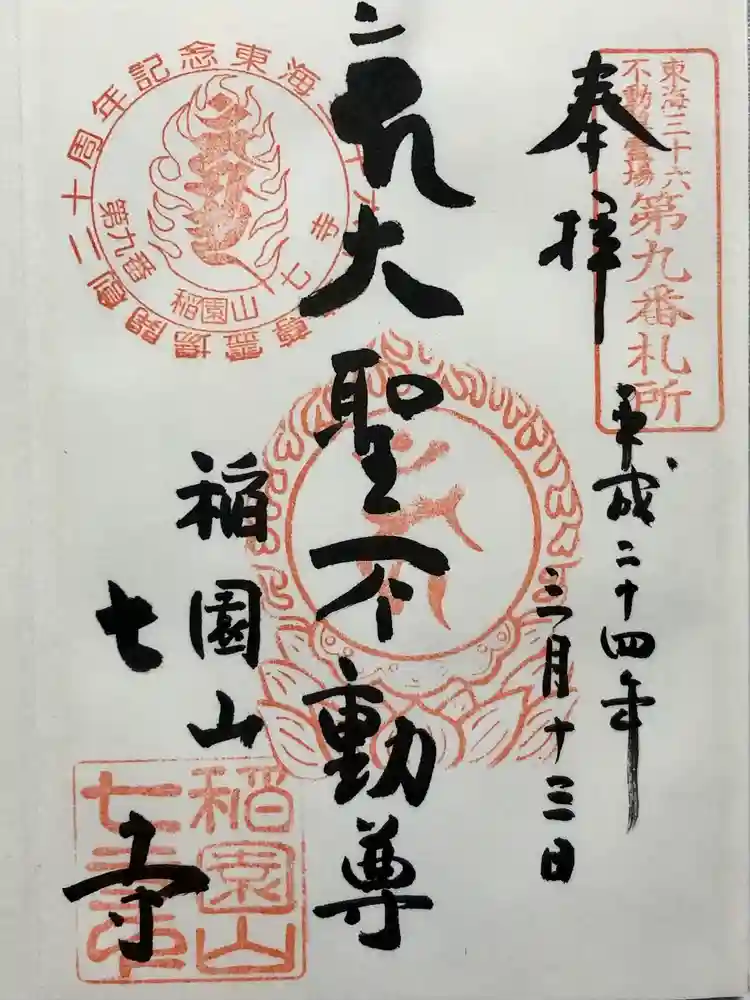 東海三十六
不動尊霊場
第九番札所
奉拝
平成二十四年
三月十三日
大聖不動尊
稲園山
七寺
二十周年記念東海三十六
開創
尊霊場
第九番
稲園山
七寺
稲園山
七寺